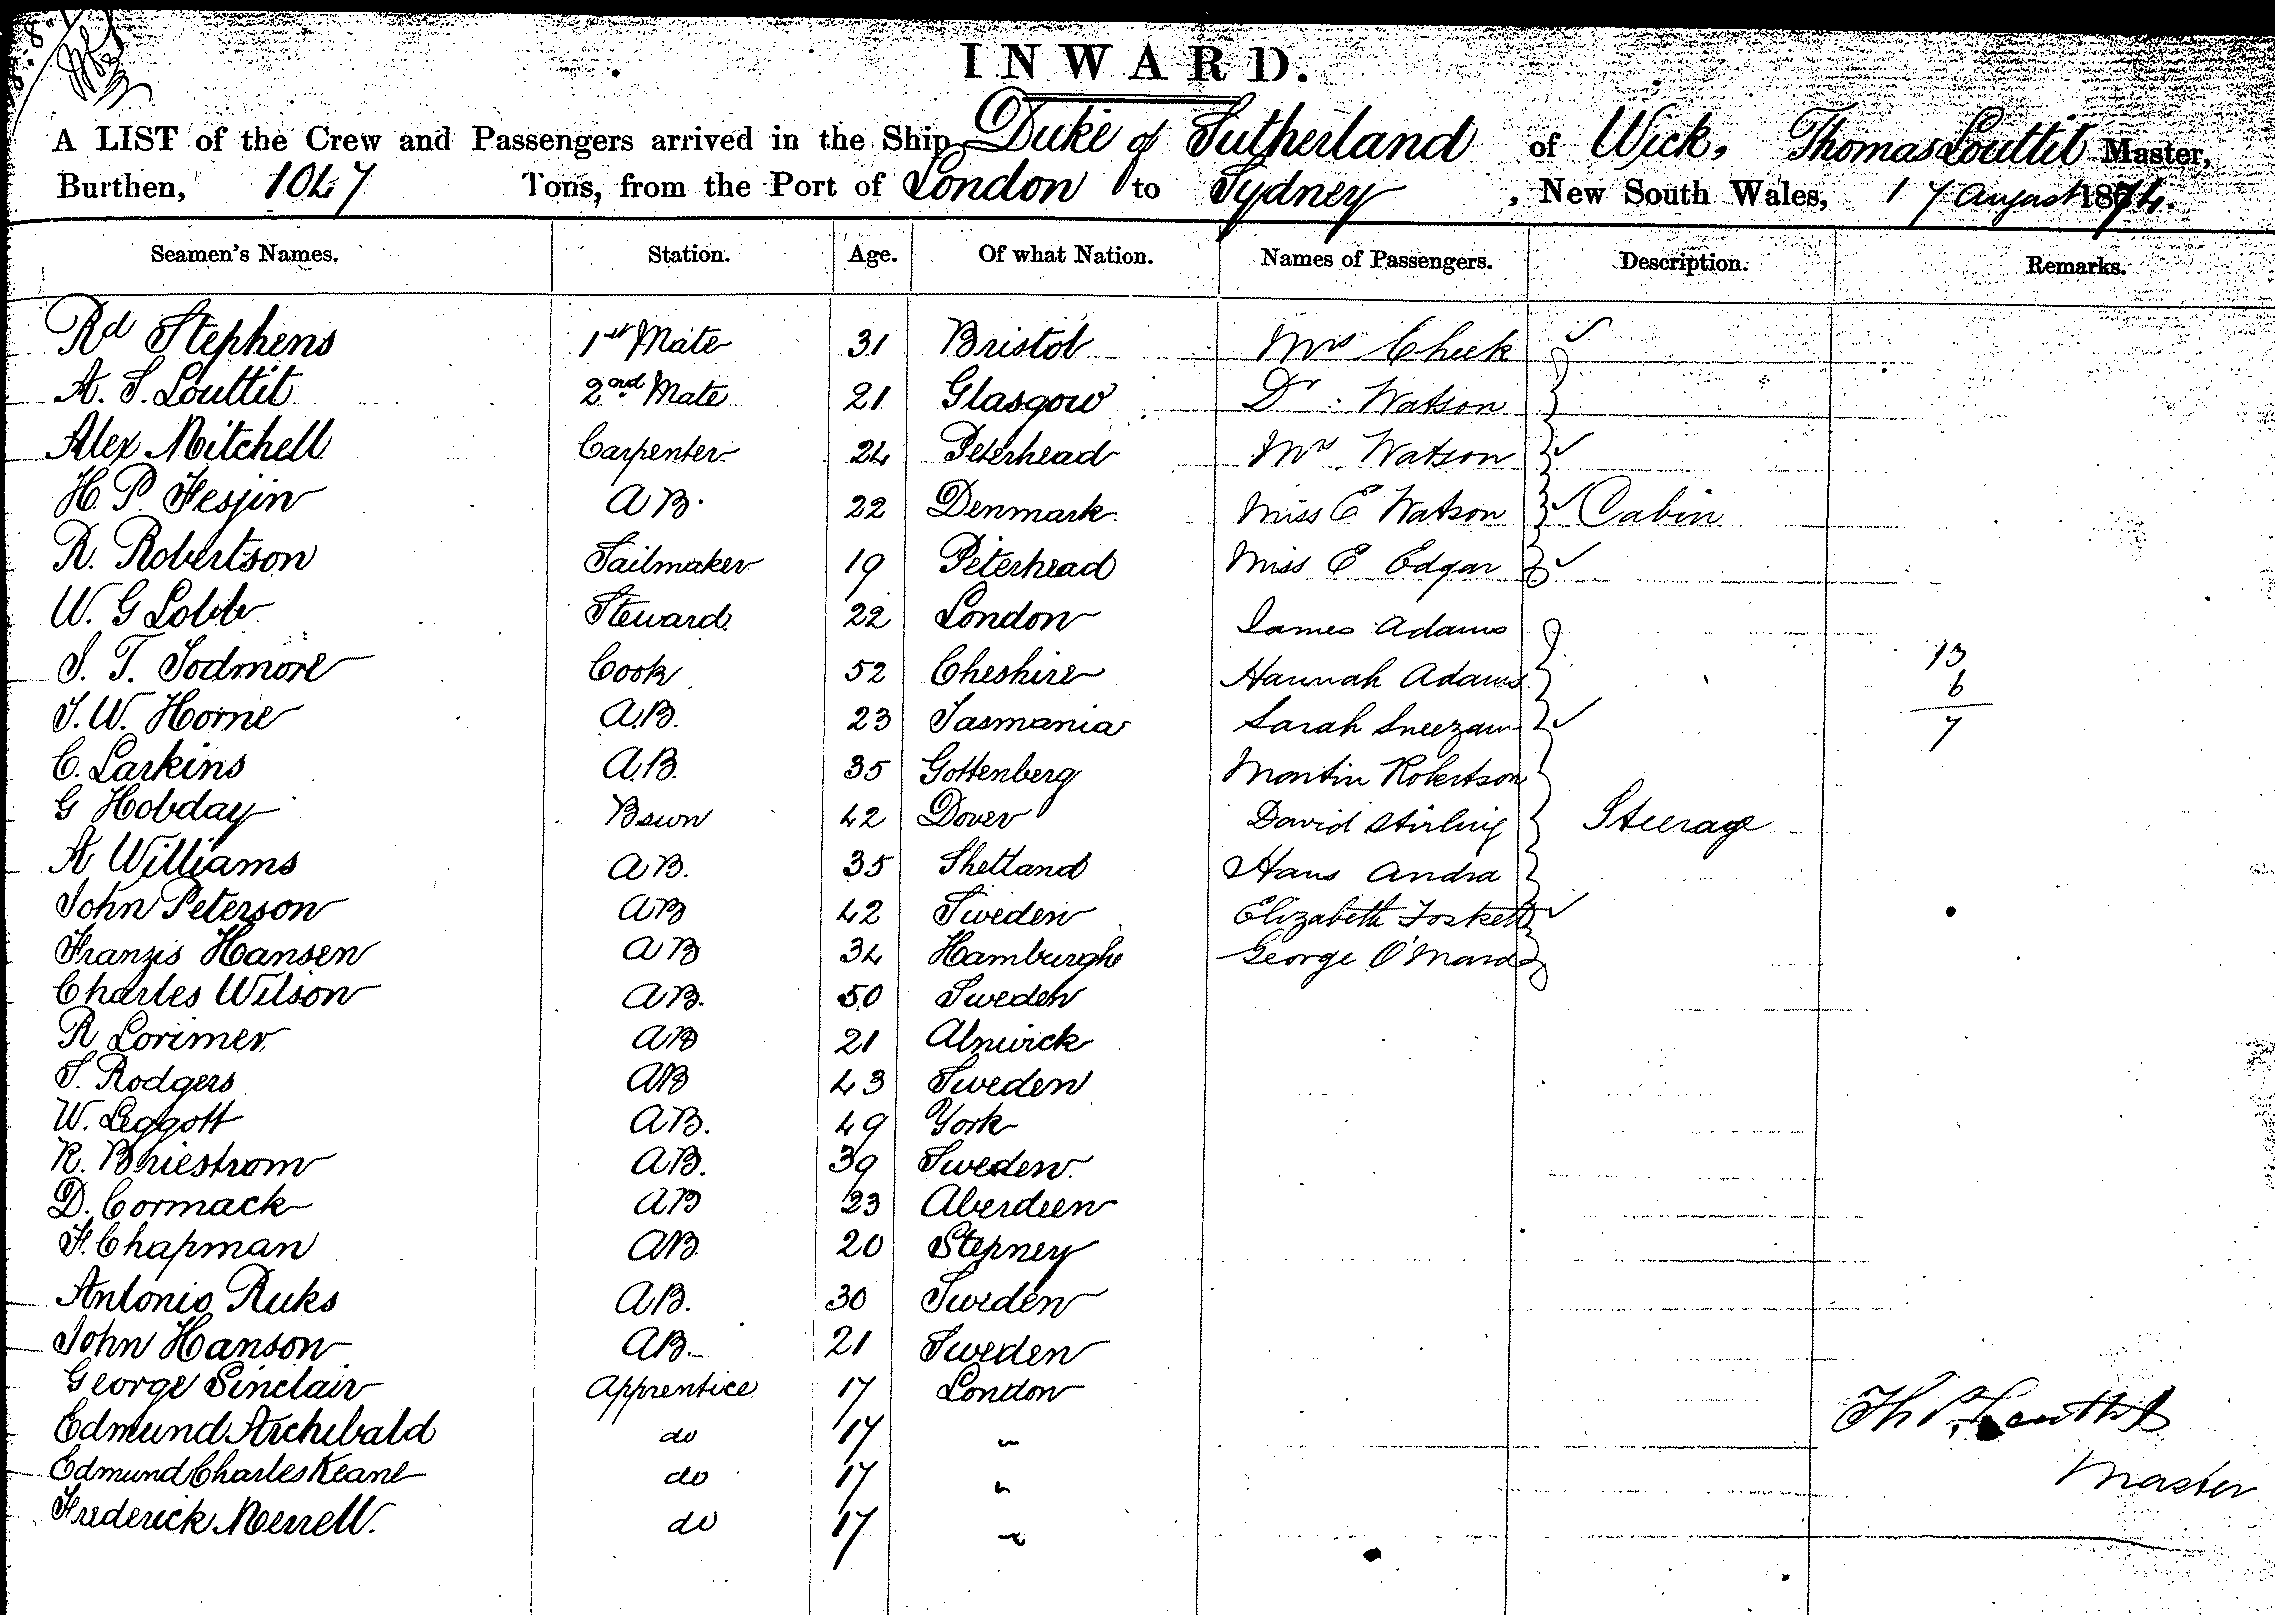 INWARD.
A LIST of the Crew and Passengers arrived in the Ship Duke of Sutherland of Wick, Thomas Louttit Master,
Burthen, 1047 Tons, from the Port of London to Sydney, New South Wales, 17 August 1874.
Seamen's Names. Station. Age. Of what Nation. Names of Passengers. Description. Remarks.
Rd Stephens 1st Mate 31 Bristol Mrs Cheek
A. S. Louttit 2nd Mate 21 Glasgow Dr. Watson
Alex Mitchell Carpenter 24 Peterhead Mrs Watson
H. P. Fesjin AB. 22 Denmark Miss E Watson Cabin
R. Robertson Sailmaker 19 Peterhead Miss E Edgar
W. G Lobb Steward 22 London James Adams
S. T. Todmore Cook 52 Cheshire Hannah Adams 13
6
J. W. Horne A.B. 23 Tasmania Sarah 7
C. Larkins A.B. 35 Gottenberg Martin Robertson
G Hobday Bswn 42 Dover David Stirling Steerage
A Williams AB. 35 Shetland Hans Andra
John Peterson AB 42 Sweden Elizabeth Foskett
Franzis Hansen AB 34 Hamburghe George O'Mard
Charles Wilson AB. 50 Sweden
R Lorimer AB 21 Alnwick
S. Rodgers AB 43 Sweden
W. Leggott AB. 49 York
R. Briestrom AB. 39 Sweden
D. Cormack AB 23 Aberdeen
F. Chapman AB 20 Stepney
Antonio Ruks AB. 30 Sweden
John Hanson AB. 21 Sweden
George Sinclair Apprentice 17 London
Edmund Archibald do 17 " Thos Louttit
Edmund Charles Keane do 17 " Master
Frederick Merrell. do 17 "